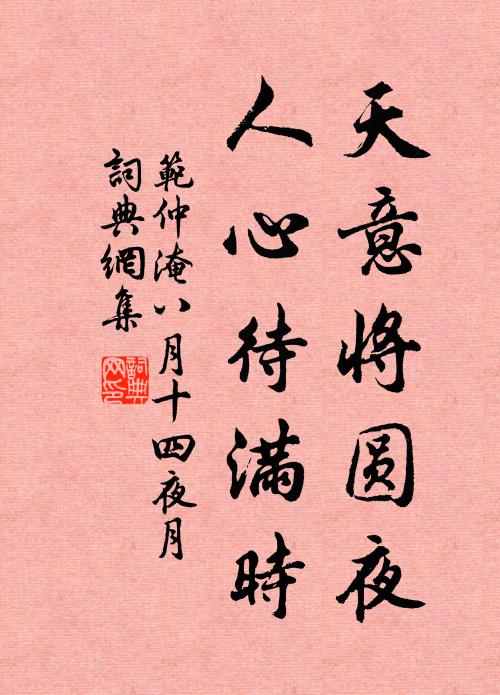 天意將圆夜
人心待滿時
範仲淹八月十四夜月
詞典網集
詞典网印